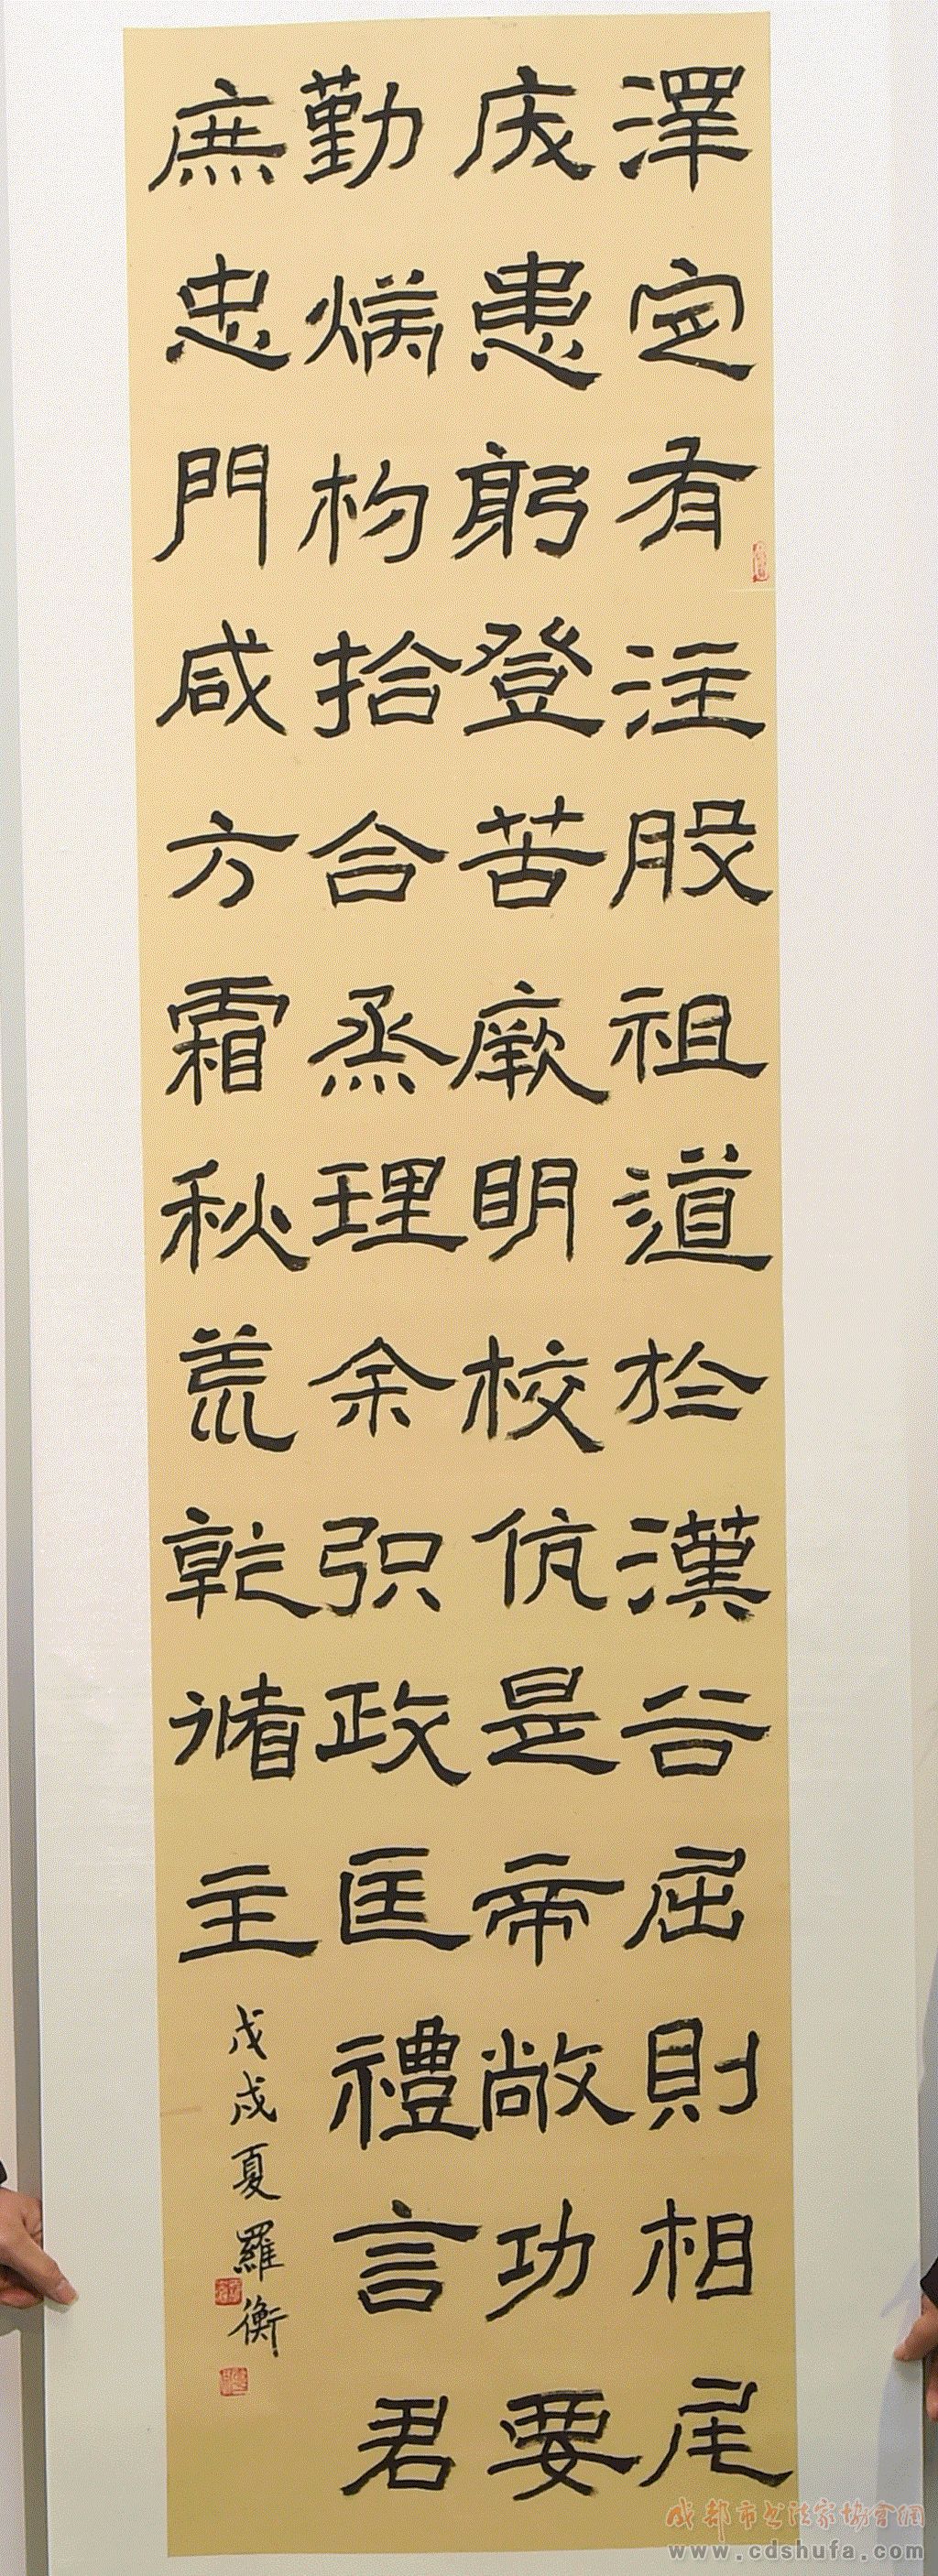 澤定有注股祖道於漢谷屈則相尾
患躬登苦厥明校伉是帝敞功要
勤拾合烝理余政匡禮言君
庶忠門咸方霜秋荒乾主
戊戌夏羅衡
成都市书法家協會網
www.cdshufa.com